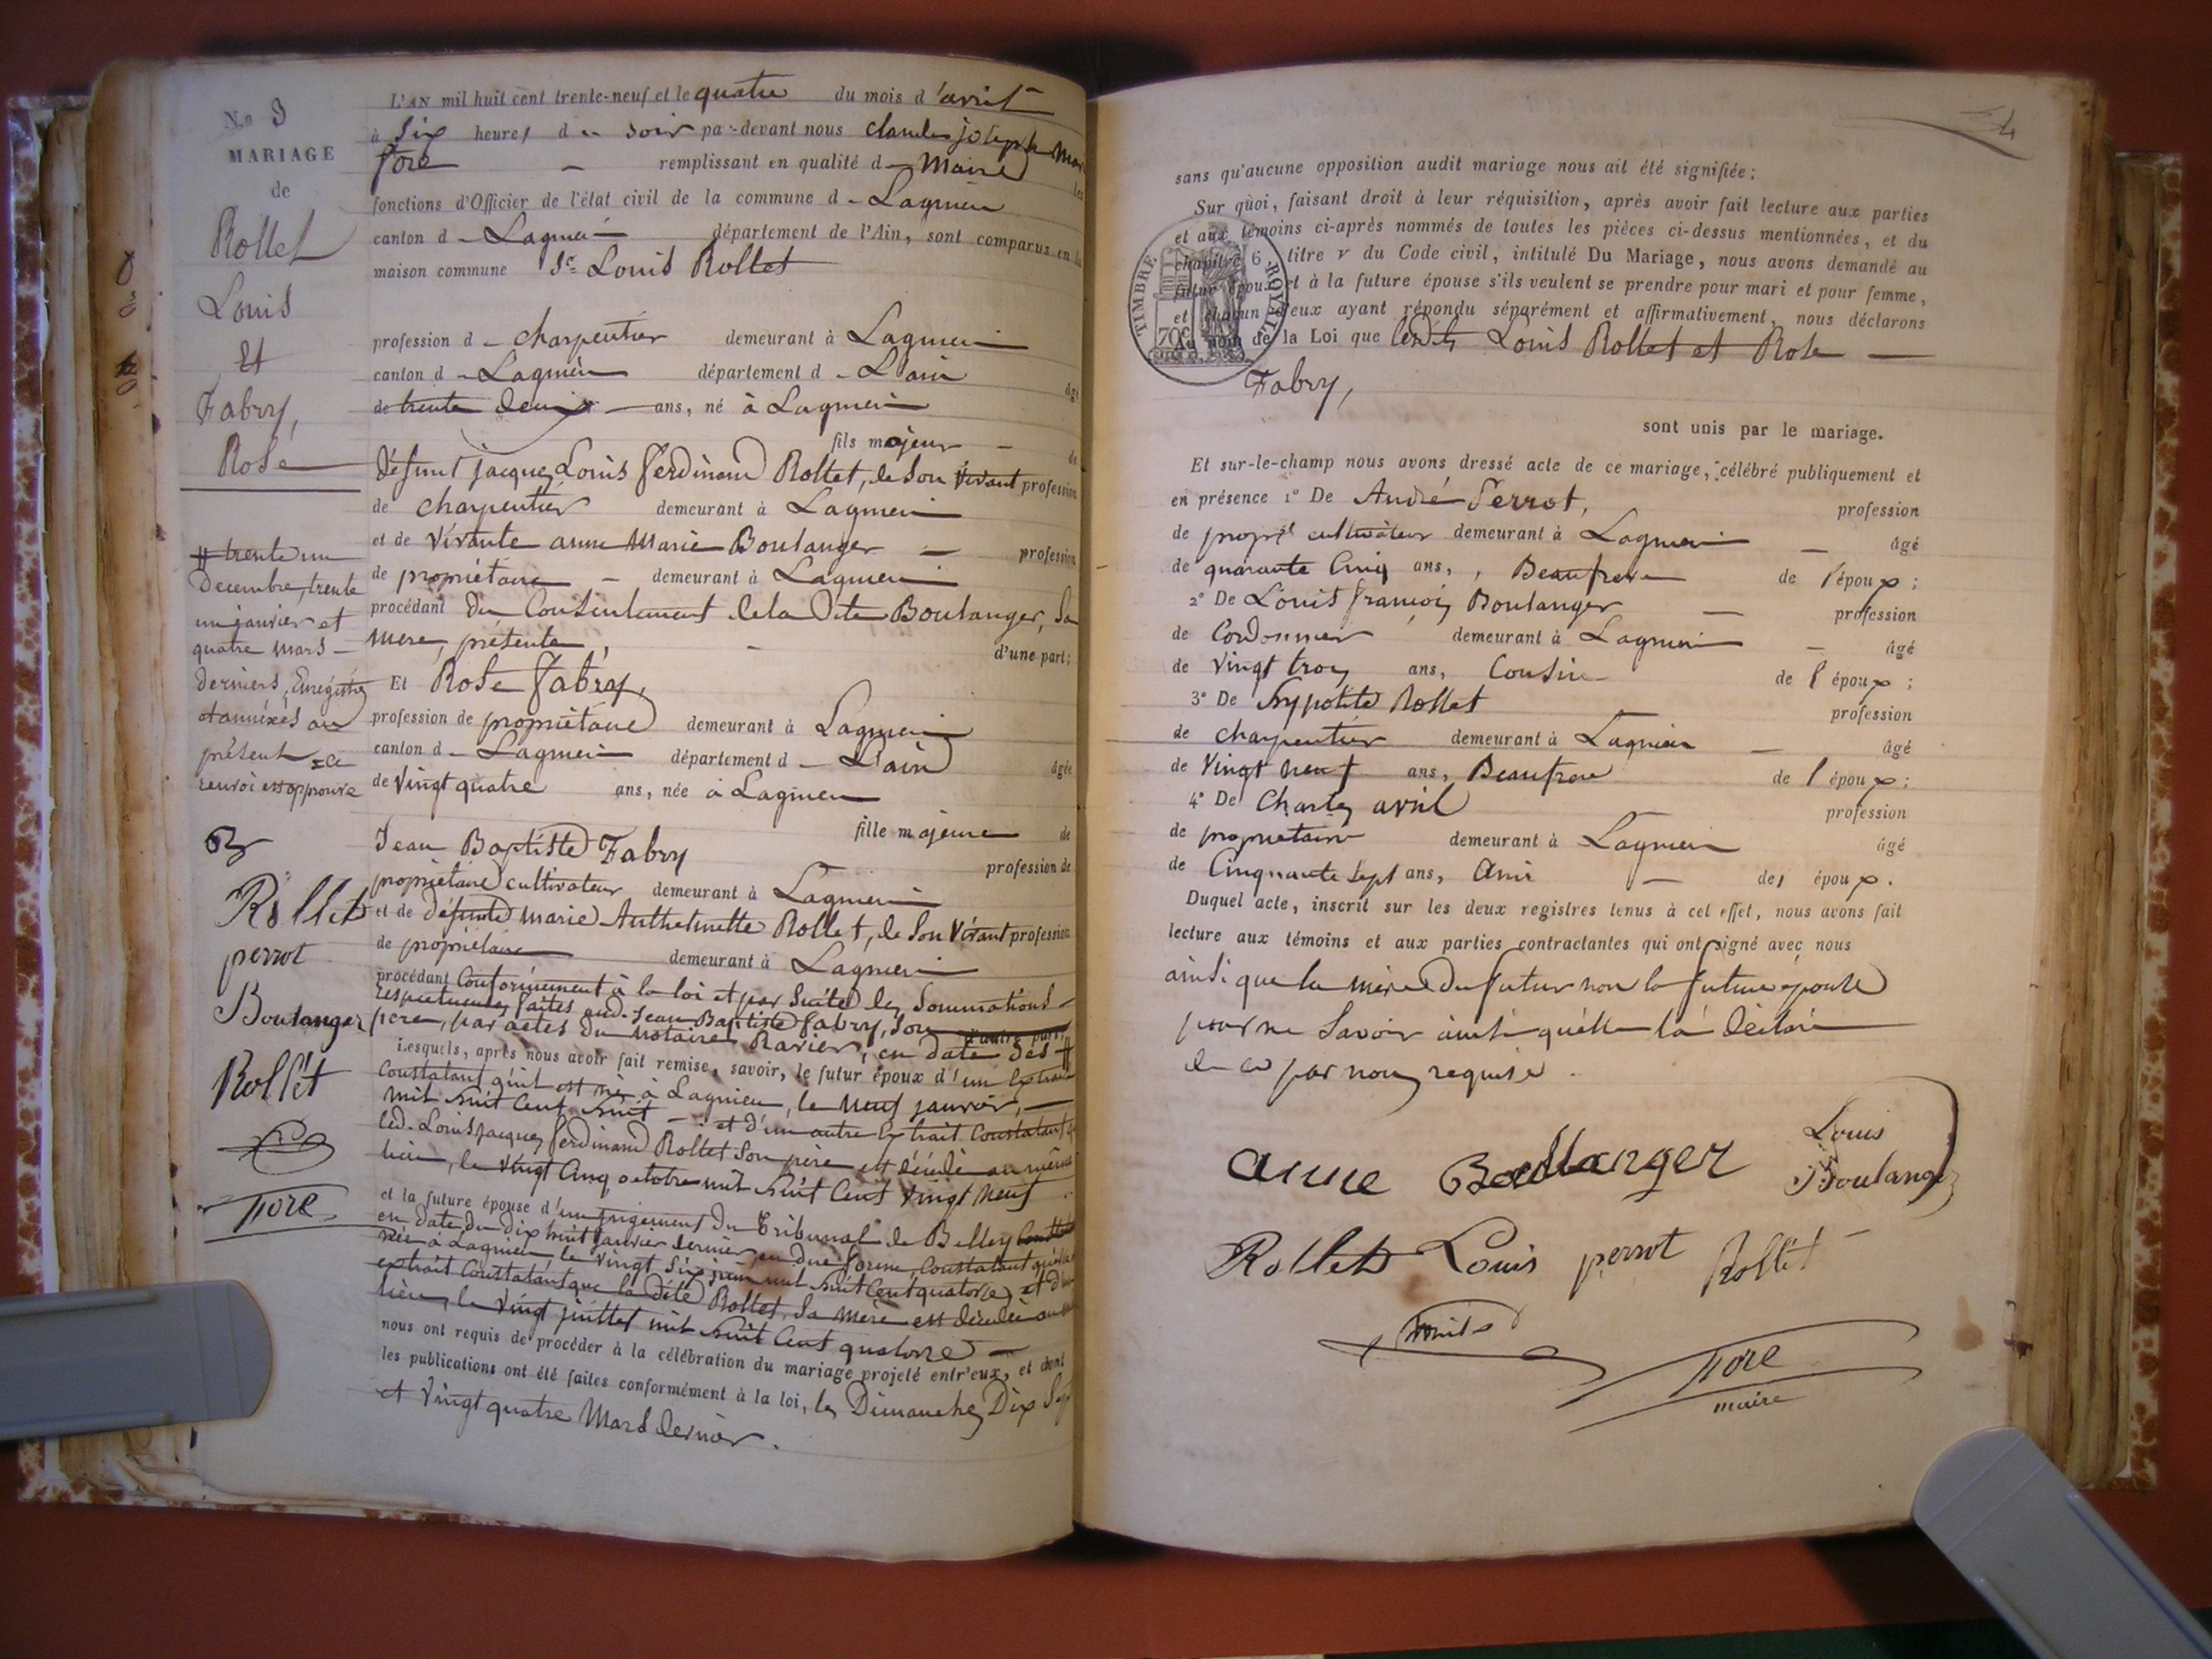 N.o 9
MARIAGE
de
Rollet
Louis
Et
Fabry,
Rose
L'AN mil huit cent trente-neuf et le quatre du mois d'avril
à six heures du soir par-devant nous claude joseph Marie
fore remplissant en qualité d Maire les
fonctions d'Officier de l'état civil de la commune d Lagnieu
canton d Lagnieu département de l'Ain, sont comparus en la
maison commune Sr. Louis Rollet
profession d charpentier demeurant à Lagnieu
canton d Lagnieu département d L'ain âgé
de trente deux ans, né à Lagnieu
fils majeur de
défunt jacques Louis ferdinand Rollet, de son vivant profession
de charpentier demeurant à Lagnieu
et de vivante anne Marie Boulanger profession
de propriétaire demeurant à Lagnieu
procédant du Consentement de la dite Boulanger, sa
mere, présente, d'une part;
Et Rose fabry,
profession de propriétaire demeurant à Lagnieu
canton d Lagnieu département d L'ain âgée
de vingt quatre ans, née à Lagnieu
fille majeure de
Jean Baptiste Fabry profession de
propriétaire cultivateur demeurant à Lagnieu
et de défunte marie Anthelmette Rollet, de son vivant profession
de propriétaire demeurant à Lagnieu
procédant Conformément à la loi et par suite des Sommations
respectueuses faites aud. Jean Baptiste fabry, son d'autre part;
pere, par actes du notaire Ravier, en date des #
Lesquels, après nous avoir fait remise, savoir, le futur époux d'un Extrait
Constatant qu'il est né à Lagnieu, le neuf janvier,
mil huit Cent huit et d'un autre Extrait Constatant q
led. Louis jacques ferdinand Rollet son père est décédé au même
lieu, le vingt Cinq octobre mil huit Cent vingt neuf
et la future épouse d'un jugement du Tribunal de Belley
en date du dix huit janvier dernier, en due forme, Constatant qu'elle
née à Lagnieu le vingt six juin mil huit Cent quatorze, et d'un
extrait Constatant que la dite Rollet, sa mere est décédée au
lieu, le vingt juillet mil huit Cent quatorze
nous ont requis de procéder à la célébration du mariage projeté entr'eux, et dont
les publications ont été faites conformément à la loi, les Dimanches Dix Sept
et vingt quatre Mars dernier.
# trente un
Decembre, trente
un janvier et
quatre mars
derniers, Enregistrés
et annéxés au
présent = ce
renvoi est approuvé
Rollet
perrot
Boulanger
Rollet
fore
sans qu'aucune opposition audit mariage nous ait été signifiée;
Sur quoi, faisant droit à leur réquisition, après avoir fait lecture aux parties
et aux témoins ci-après nommés de toutes les pièces ci-dessus mentionnées, et du
chapitre 6 titre v du Code civil, intitulé Du Mariage, nous avons demandé au
futur époux et à la future épouse s'ils veulent se prendre pour mari et pour femme,
et chacun d'eux ayant répondu séparément et affirmativement, nous déclarons
Au nom de la Loi que lesdits Louis Rollet et Rose
Fabry,
TIMBRE ROYAL
70c
sont unis par le mariage.
Et sur-le-champ nous avons dressé acte de ce mariage, célébré publiquement et
en présence 1° De André Perrot, profession
de propre cultivateur demeurant à Lagnieu âgé
de quarante Cinq ans, Beaufrere de l'époux;
2° De Louis françois Boulanger profession
de Cordonnier demeurant à Lagnieu âgé
de vingt trois ans, Cousin de l'époux;
3° De hypolite Rollet profession
de charpentier demeurant à Lagnieu âgé
de Vingt neuf ans, Beaufrere de l'époux;
4° De Charles avril profession
de propriétaire demeurant à Lagnieu âgé
de Cinquante sept ans, Ami des époux.
Duquel acte, inscrit sur les deux registres tenus à cet effet, nous avons fait
lecture aux témoins et aux parties contractantes qui ont signé avec nous
ainsi que la mère du futur non la future épouse
pour ne savoir ainsi quélle la déclaré
de ce par nous requise.
anne Boullanger
Louis
Boulanger
Rollet Louis perrot Rollet
fore
maire